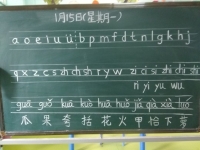 1月15日(星期一)
a o e i u ü b p m f d t n l g k h j
q x z c s zh ch sh r y w zi ci si zhi chi shi
ri yi yu wu
guā guǒ kuā kuò huā huǒ jiǎ qià xià luó
瓜 果 夸 括 花 火 甲 恰 下 萝